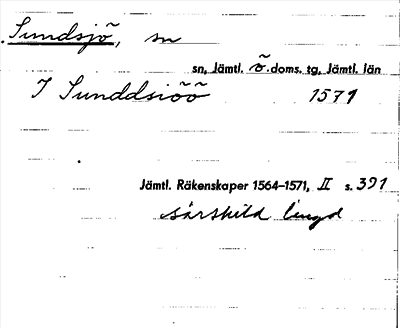 Sundsjõ, sn
sn, Jämtl. õ. doms. tg, Jämtl. län
I Sunddsiõõ 1571
Jämtl. Räkenskaper 1564–1571, II s. 391
särskild längd